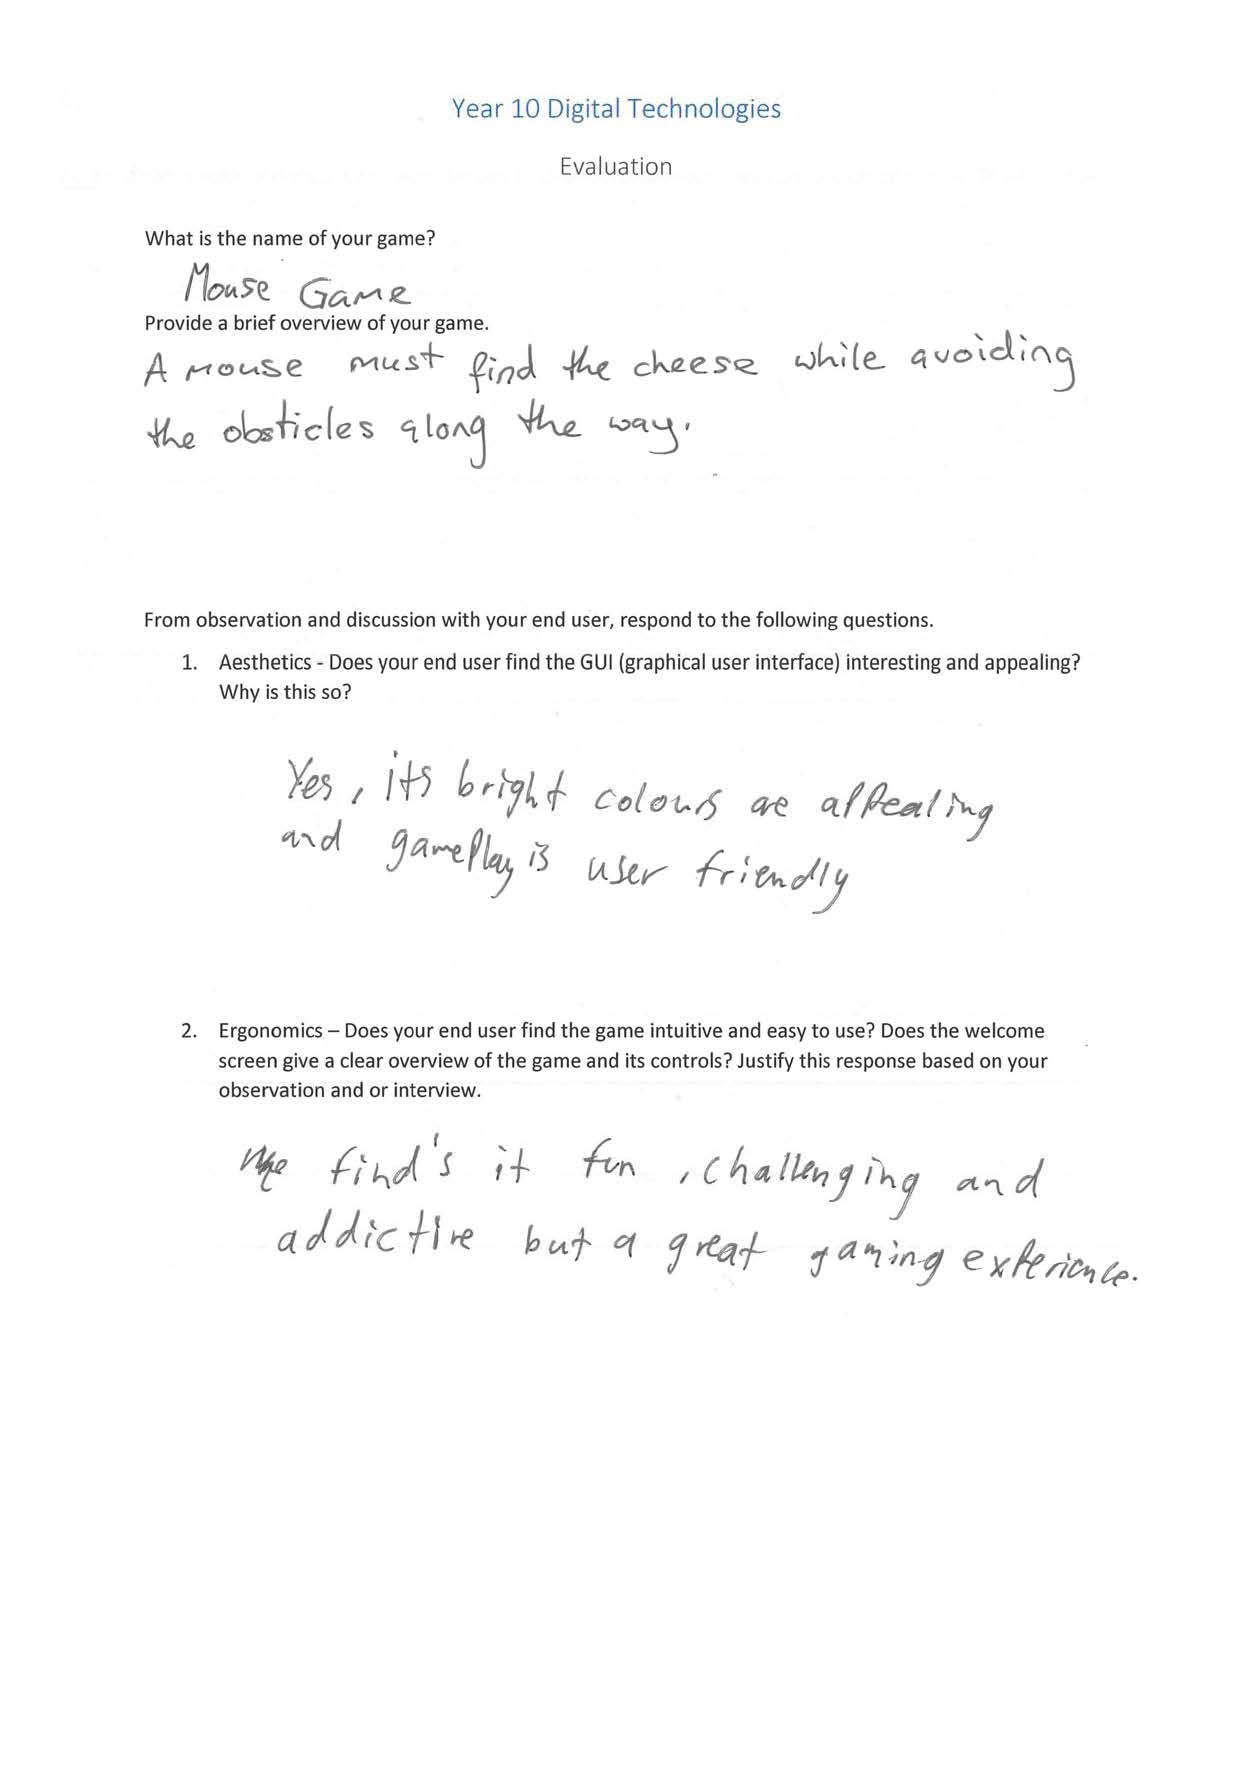 Year 10 Digital Technologies
Evaluation
What is the name of your game?
Mouse Game
Provide a brief overview of your game.
A mouse must find the cheese while avoiding
the obsticles along the way.
From observation and discussion with your end user, respond to the following questions.
1. Aesthetics - Does your end user find the GUI (graphical user interface) interesting and appealing?
Why is this so?
Yes, its bright colours are appealing
and gameplay is user friendly
2. Ergonomics – Does your end user find the game intuitive and easy to use? Does the welcome
screen give a clear overview of the game and its controls? Justify this response based on your
observation and or interview.
find's it fun, challenging and
addictive but a great gaming experience.